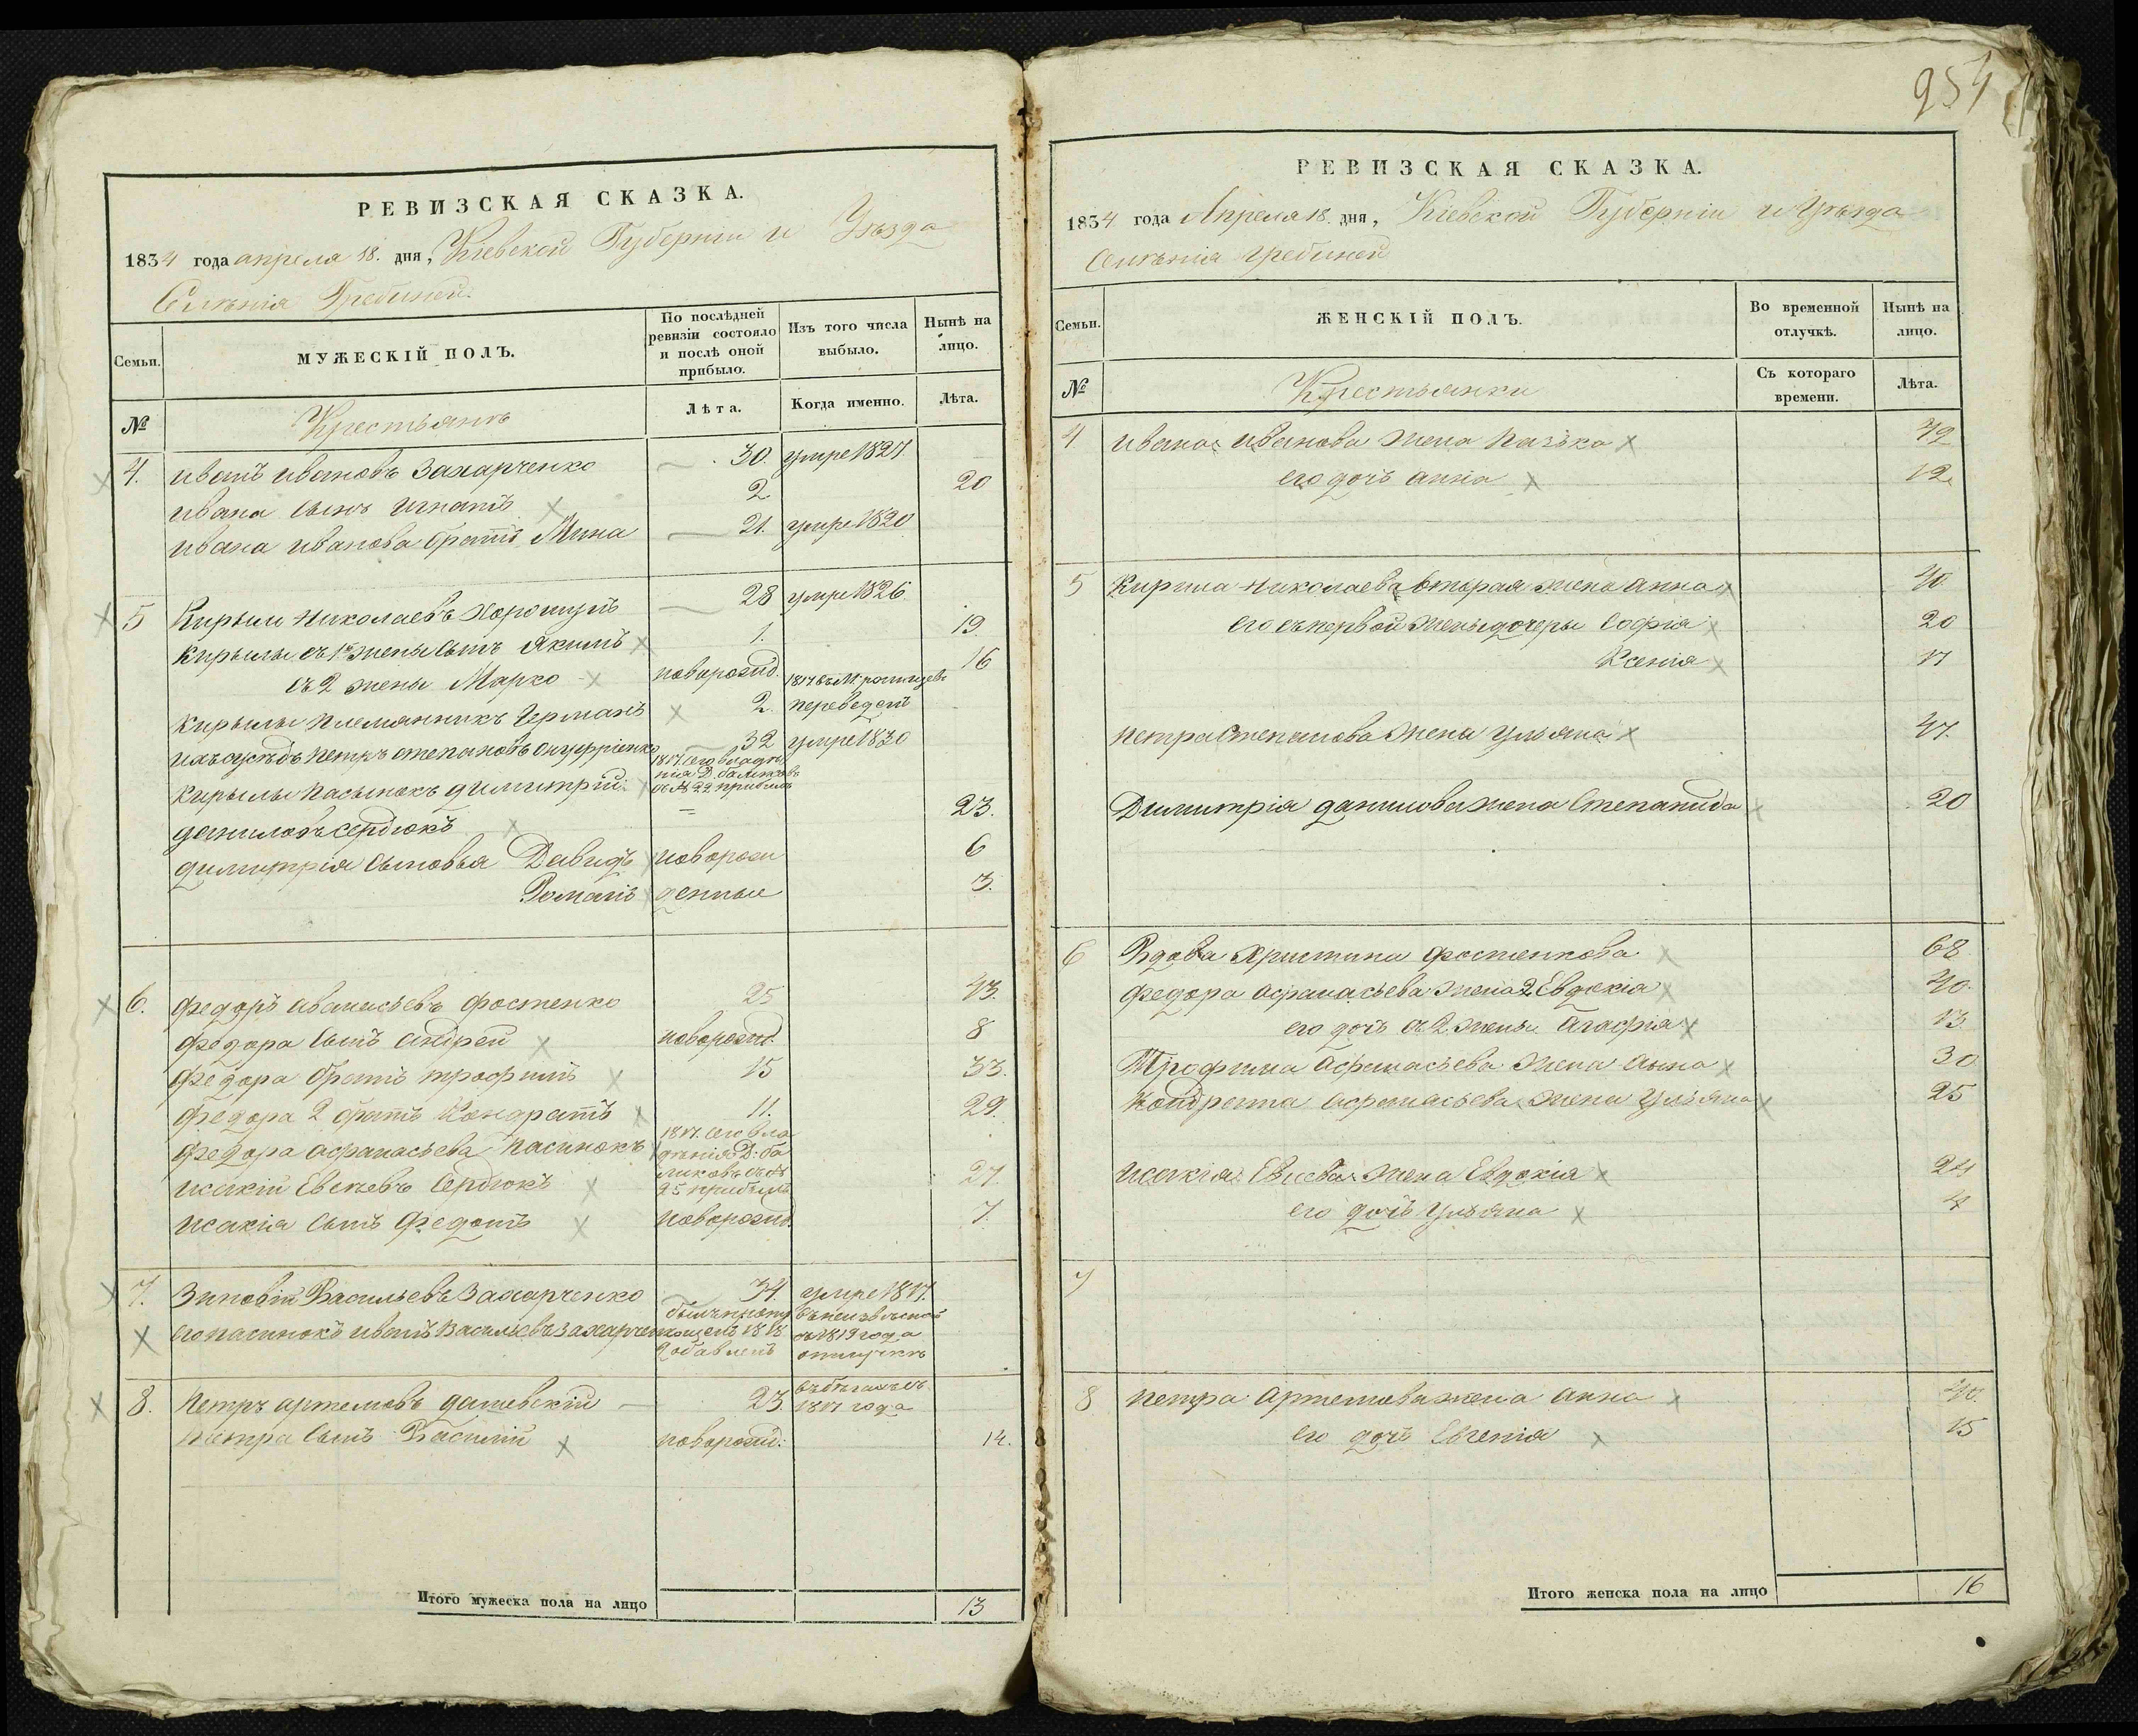 954
РЕВИЗСКАЯ СКАЗКА.
1834 года апреля 18. дня, Кіевской Губерніи и Уѣзда
Селѣнія Гребиной.
Семьи.
МУЖЕСКІЙ ПОЛЪ.
По послѣдней ревизіи состояло и послѣ оной прибыло.
Изъ того числа выбыло.
Нынѣ на лицо.
№
Крестьянъ
Лѣта.
Когда именно.
Лѣта.
4. иванъ ивановъ Захарченко 30. умре 1827
ивана сынъ игнатъ 2 20
ивана иванова братъ Мина 21. умре 1820
5 Кирыли николаевъ 28 умре 1826
Кирылы съ 1й жены сынъ Якимъ 1. 19.
съ 2 жены Марко новорожд. 16
Кирылы племянникъ Германъ 2. 1817 въ М. переведенъ
ихъ сусѣдъ петръ степановъ онуфріенко 32 умре 1830
Кирылы пасынокъ димитрій 1817. его владѣнія Д. съ № 22 прибылъ
даниловъ сердюкъ 23.
димитрія сыновья Давидъ новорож 6
Романъ денные 3.
6. федоръ афанасьевъ фостенко 25 43.
федора сынъ андрей новорожд. 8
федора братъ трофимъ 15 33.
федора 2 братъ Кондратъ 11. 29.
федора афанасьева пасинокъ 1817. его вла
дѣнія Д. ба
ликовъ съ №
исакій Евсѣевъ сердюкъ 25 прибылъ 27.
исакія сынъ федотъ новорожд. 7.
7. Зиновій Васильевъ Захарченко 34. умре 1817.
его пасинокъ иванъ васильевъ захарченко 1818 добавленъ въ неизвѣсной съ 1819 года отлучкѣ
8. петръ артемовъ дашевскій 23 въ бѣгахъ съ 1817 года
петра сынъ Василій новорожд: 14.
Итого мужеска пола на лицо 13
РЕВИЗСКАЯ СКАЗКА.
1834 года Апреля 18. дня, Кіевской Губерніи и Уѣзда
Селѣнія гребиной
Семьи.
ЖЕНСКІЙ ПОЛЪ.
Во временной отлучкѣ.
Нынѣ на лицо.
№
Крестьянки
Съ котораго времени.
Лѣта.
4 ивана иванова жена пазька 42
его дочь анна 12
5 Кирила николаева вторая жена анна 40
его съ первой жены дочеры софія 20
Ксенія 17
петра степанова жена ульяна 47.
Димитрія данилова жена степанида 20
6 Вдова христина фостенкова 68
федора афанасьева жена 2 Евдокія 40.
его дочь съ 2 жены агафія 13
Трофима афанасьева жена анна 30
кондрата афанасьева жена ульяна 25
исакія Евсева жена Евдокія 24
его дочь ульяна 4
7
8 петра артемова жена анна 40.
его дочь Евгенія 15
Итого женска пола на лицо 16